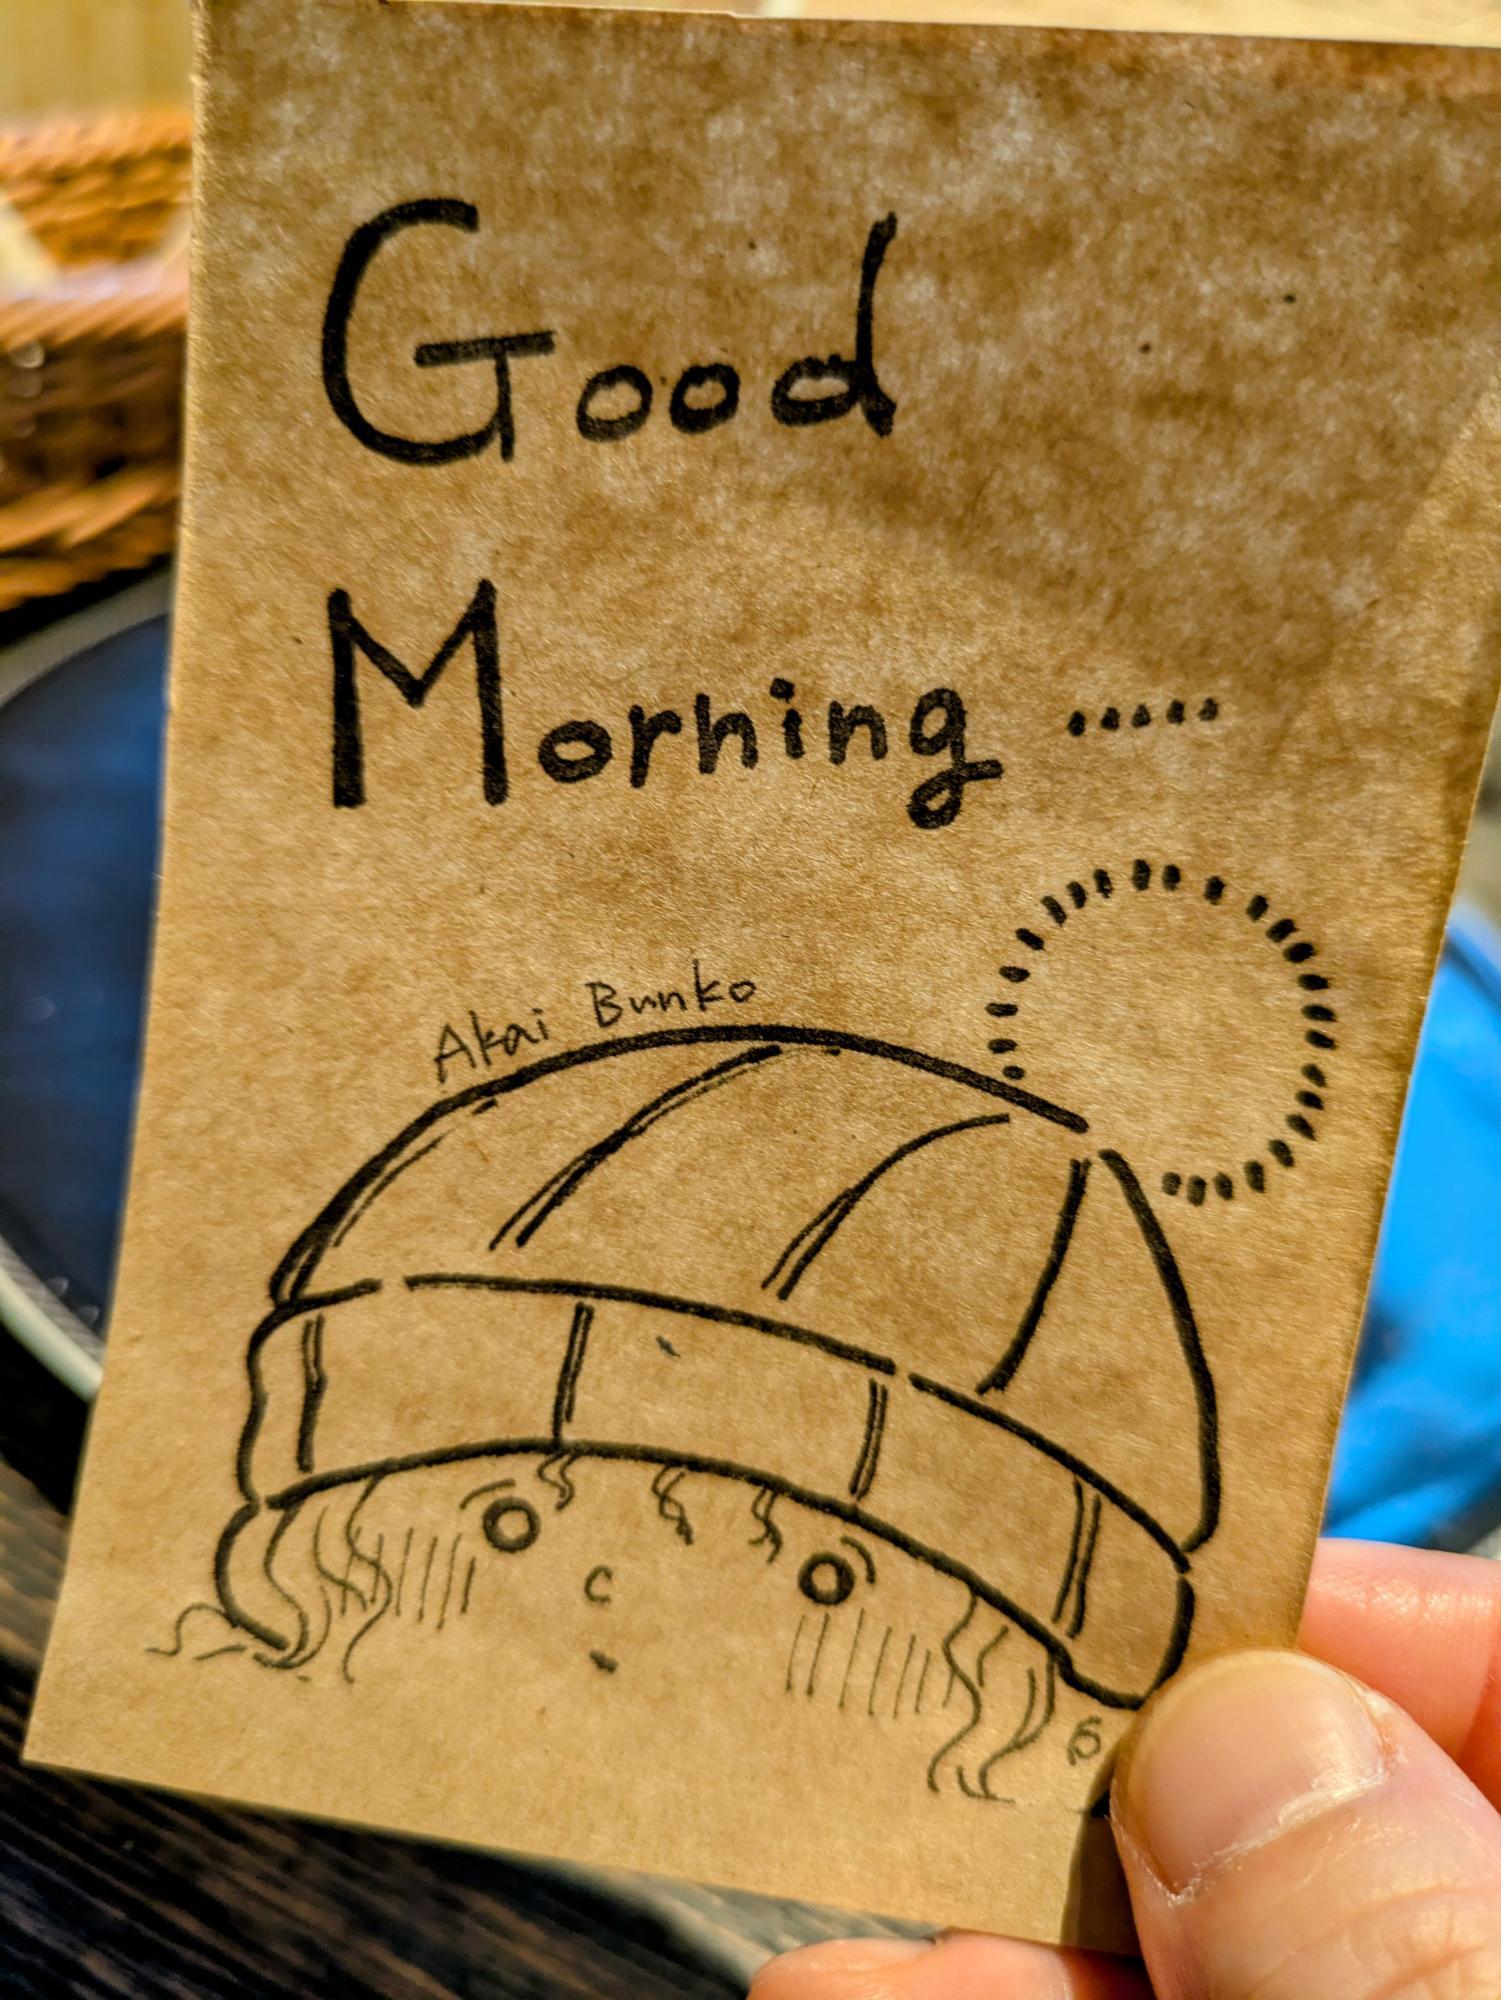 Good
Morning .....
Akai Bunko